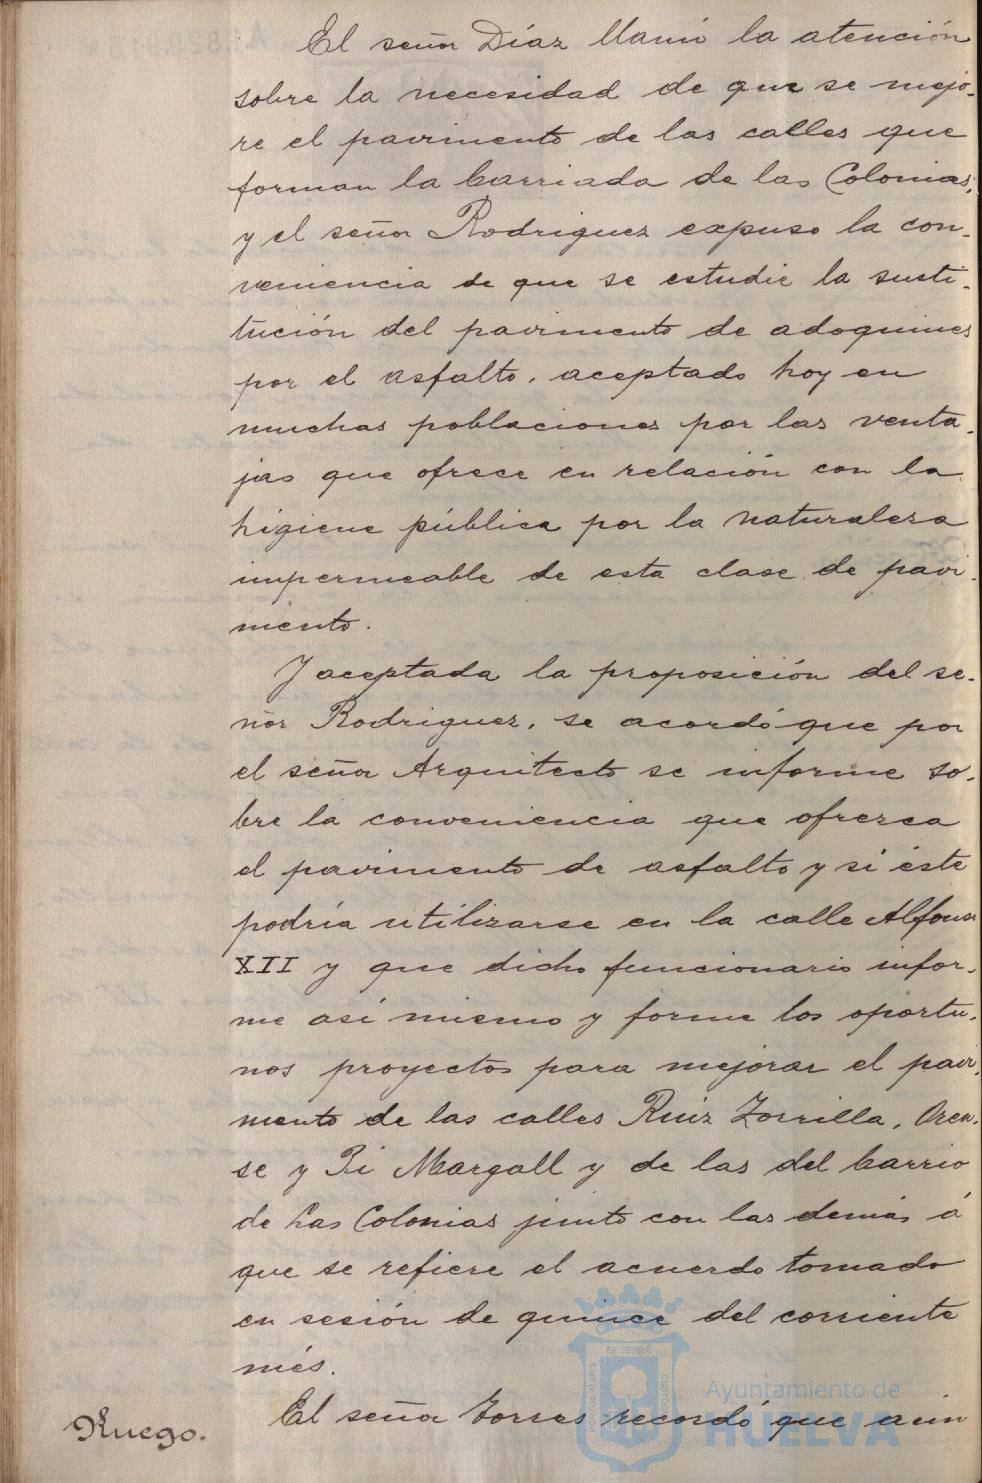 El señor Díaz llamó la atención
sobre la necesidad de que se mejo-
re el pavimento de las calles que
forman la barriada de las Colonias,
y el señor Rodriguez expuso la con-
veniencia de que se estudie la susti-
tución del pavimento de adoquines
por el asfalto, aceptado hoy en
muchas poblaciones por las venta-
jas que ofrece en relación con la
higiene pública por la naturalesa
impermeable de esta clase de pavi-
mento.
Y aceptada la proposición del se-
ñor Rodriguez, se acordó que por
el señor Arquitecto se informe so-
bre la conveniencia que ofrezca
el pavimento de asfalto y si éste
podría utilizarse en la calle Alfonso
XII y que dicho funcionario infor-
me así mismo y forme los oportu-
nos proyectos para mejorar el pavi-
mento de las calles Ruiz Zorrilla, Oren-
se y Pi Margall y de las del barrio
de Las Colonias junto con las demás á
que se refiere el acuerdo tomado
en sesión de quince del corriente
més.
Ruego. El señor Torres recordó que aún
Ayuntamiento de
HUELVA